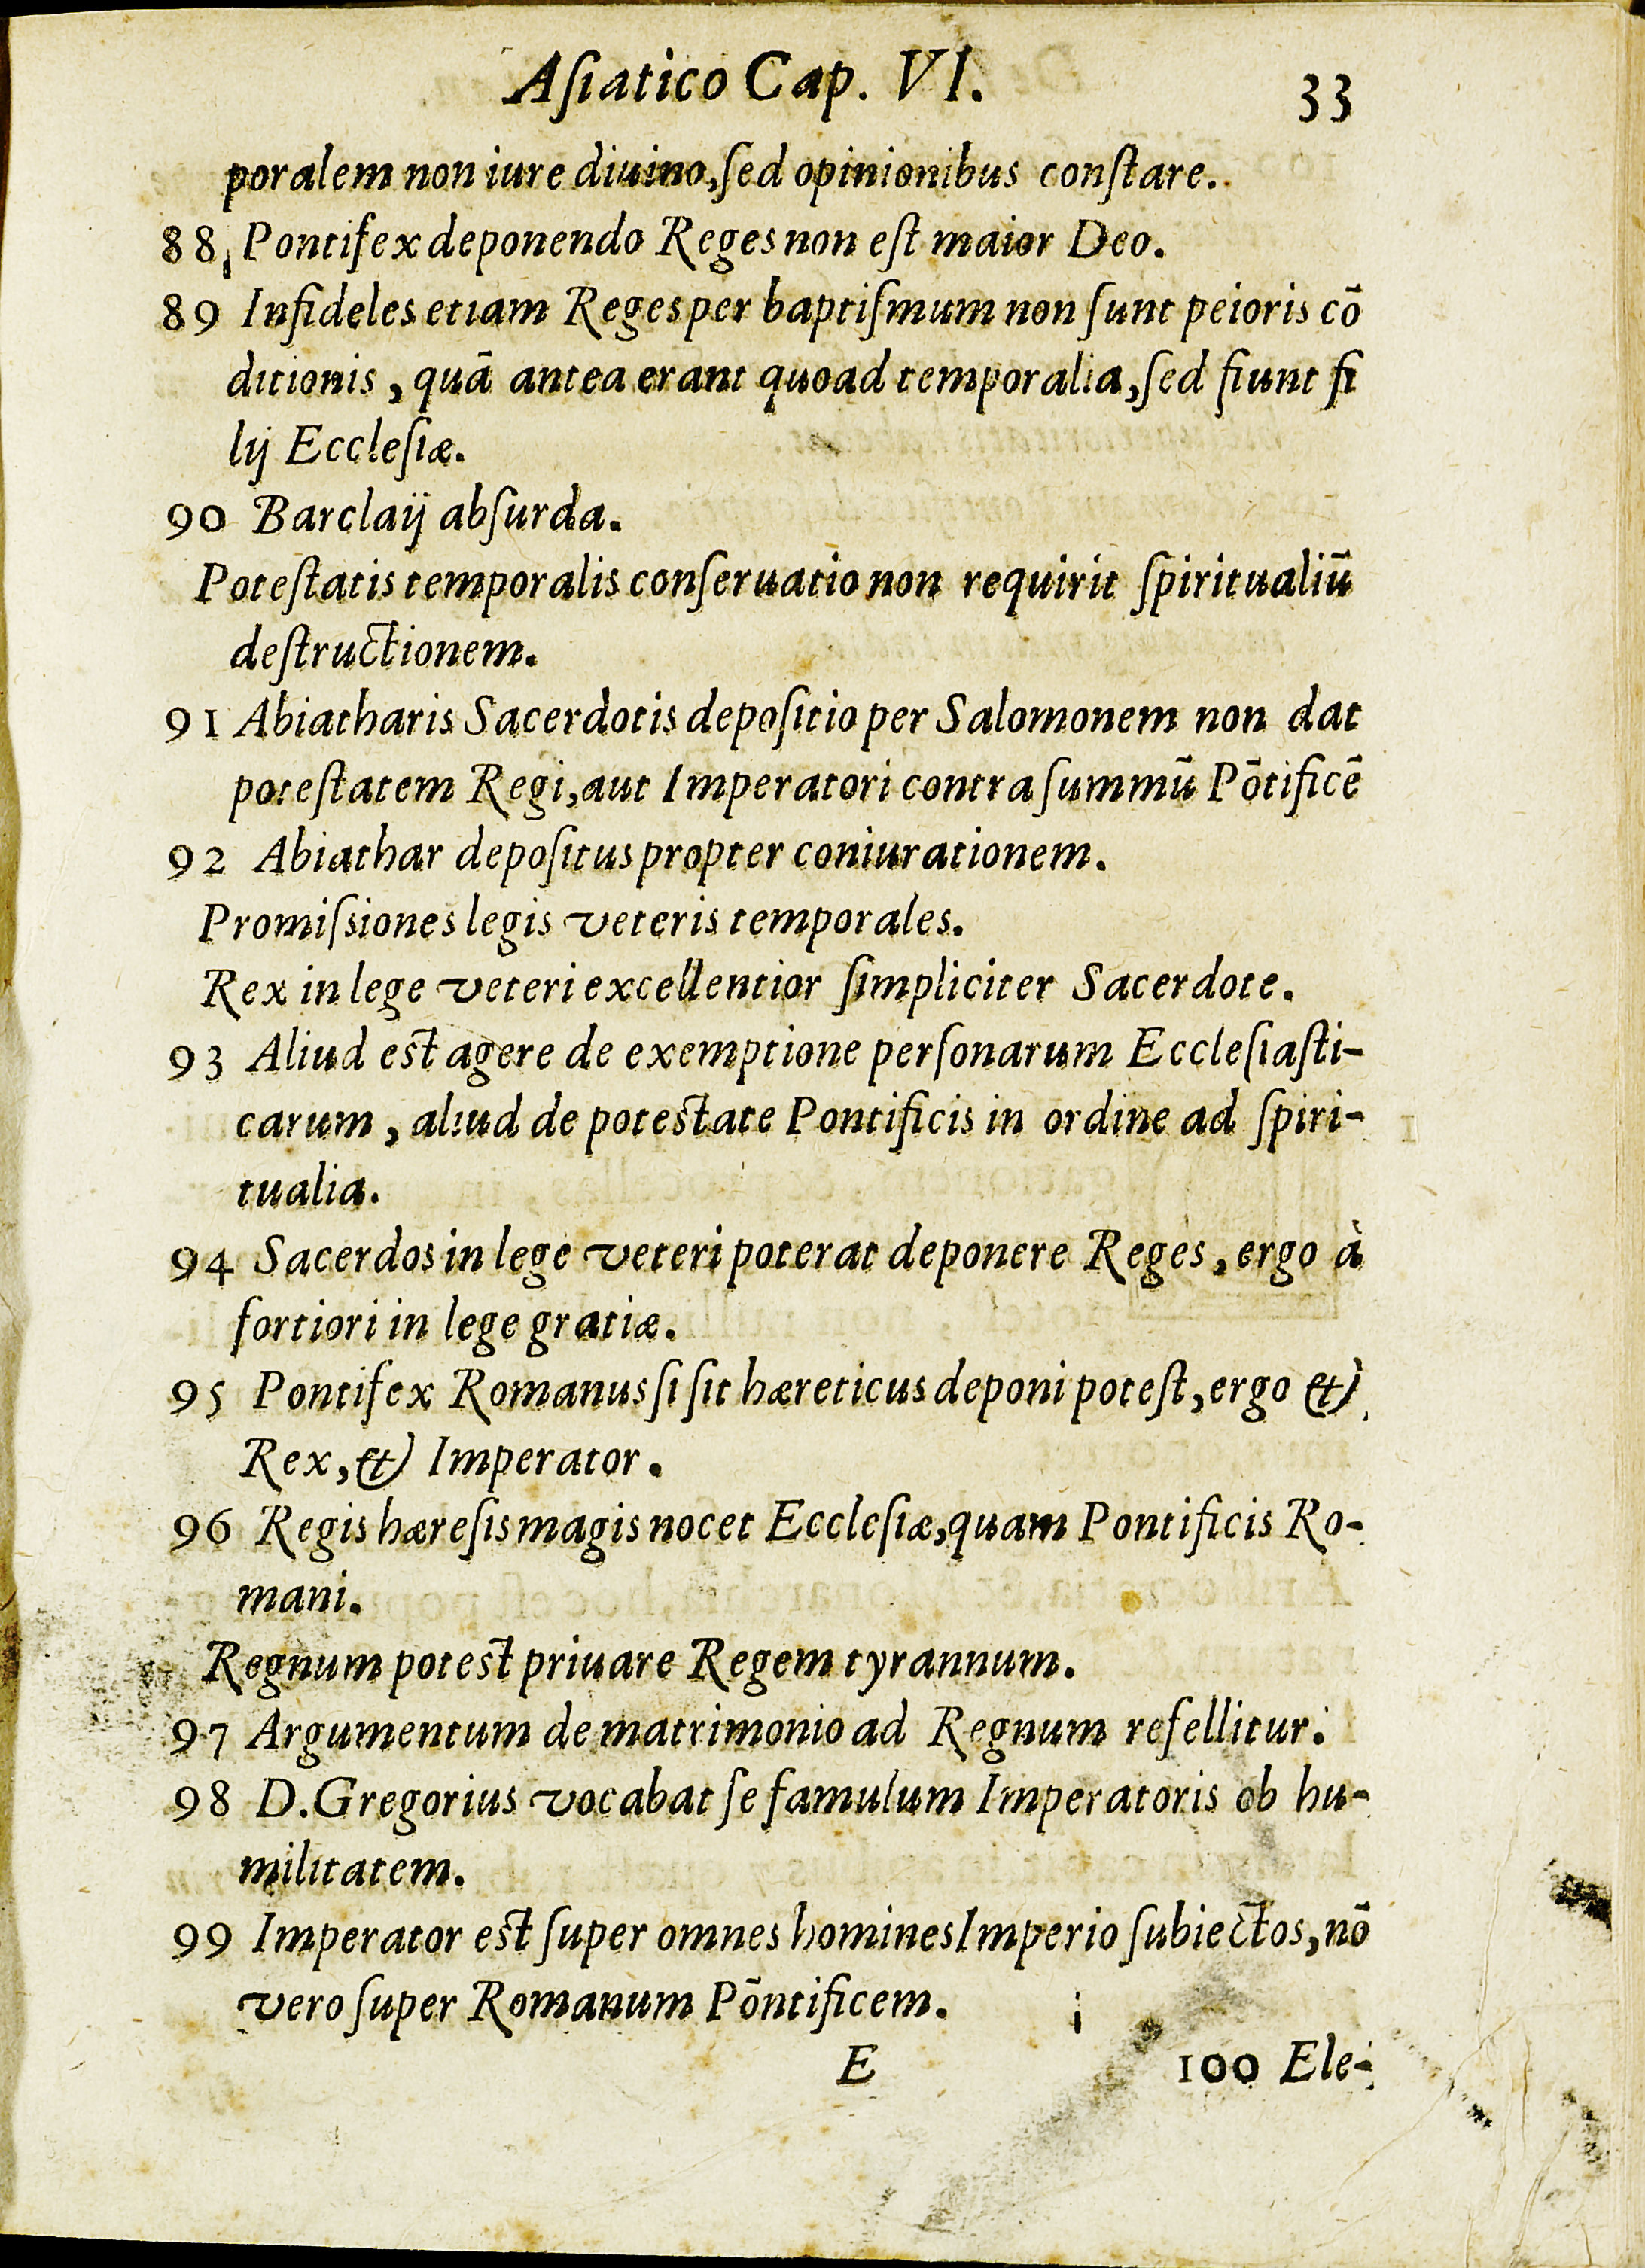 Aſiatico Cap. VI. 33
poralem non iure diuino, ſed opinionibus conſtare.
88 Pontifex deponendo Reges non eſt maior Deo.
89 Infideles etiam Reges per baptiſmum non ſunt peioris cō
ditionis, quā antea erant quoad temporalia, ſed fiunt fi
lij Eccleſiæ.
90 Barclaij abſurda.
Poteſtatis temporalis conſeruatio non requirit ſpiritualiū
deſtructionem.
91 Abiatharis Sacerdotis depoſitio per Salomonem non dat
poteſtatem Regi, aut Imperatori contra ſummū Pōtificē
92 Abiathar depoſitus propter coniurationem.
Promiſsiones legis veteris temporales.
Rex in lege veteri excellentior ſimpliciter Sacerdote.
93 Aliud eſt agere de exemptione perſonarum Eccleſiaſti-
carum, aliud de poteſtate Pontificis in ordine ad ſpiri-
tualia.
94 Sacerdos in lege veteri poterat deponere Reges, ergo à
fortiori in lege gratiæ.
95 Pontifex Romanus ſi ſit hæreticus deponi poteſt, ergo &
Rex, & Imperator.
96 Regis hæreſis magis nocet Eccleſiæ, quam Pontificis Ro-
mani.
Regnum poteſt priuare Regem tyrannum.
97 Argumentum de matrimonio ad Regnum refellitur.
98 D. Gregorius vocabat ſe famulum Imperatoris ob hu-
militatem.
99 Imperator eſt ſuper omnes homines Imperio ſubiectos, nō
vero ſuper Romanum Pōntificem.
E 100 Ele-